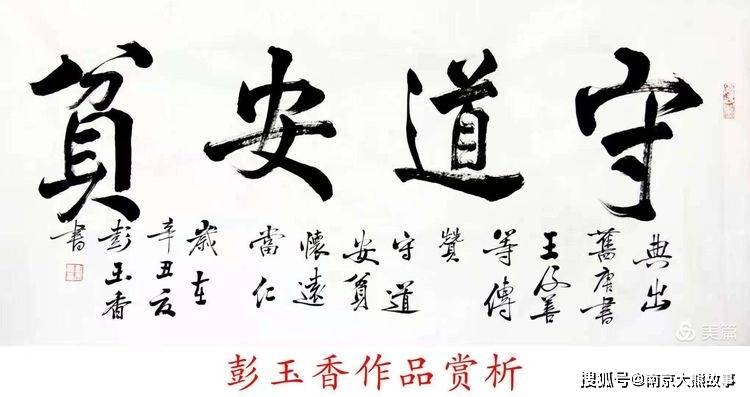 守道安貧
典出
舊唐書
王及善
等傳
贊
守道
安貧
懷遠
當仁
歲在
辛丑夏
彭玉香
書
美篇
彭玉香作品赏析
搜狐号@南京大熊故事